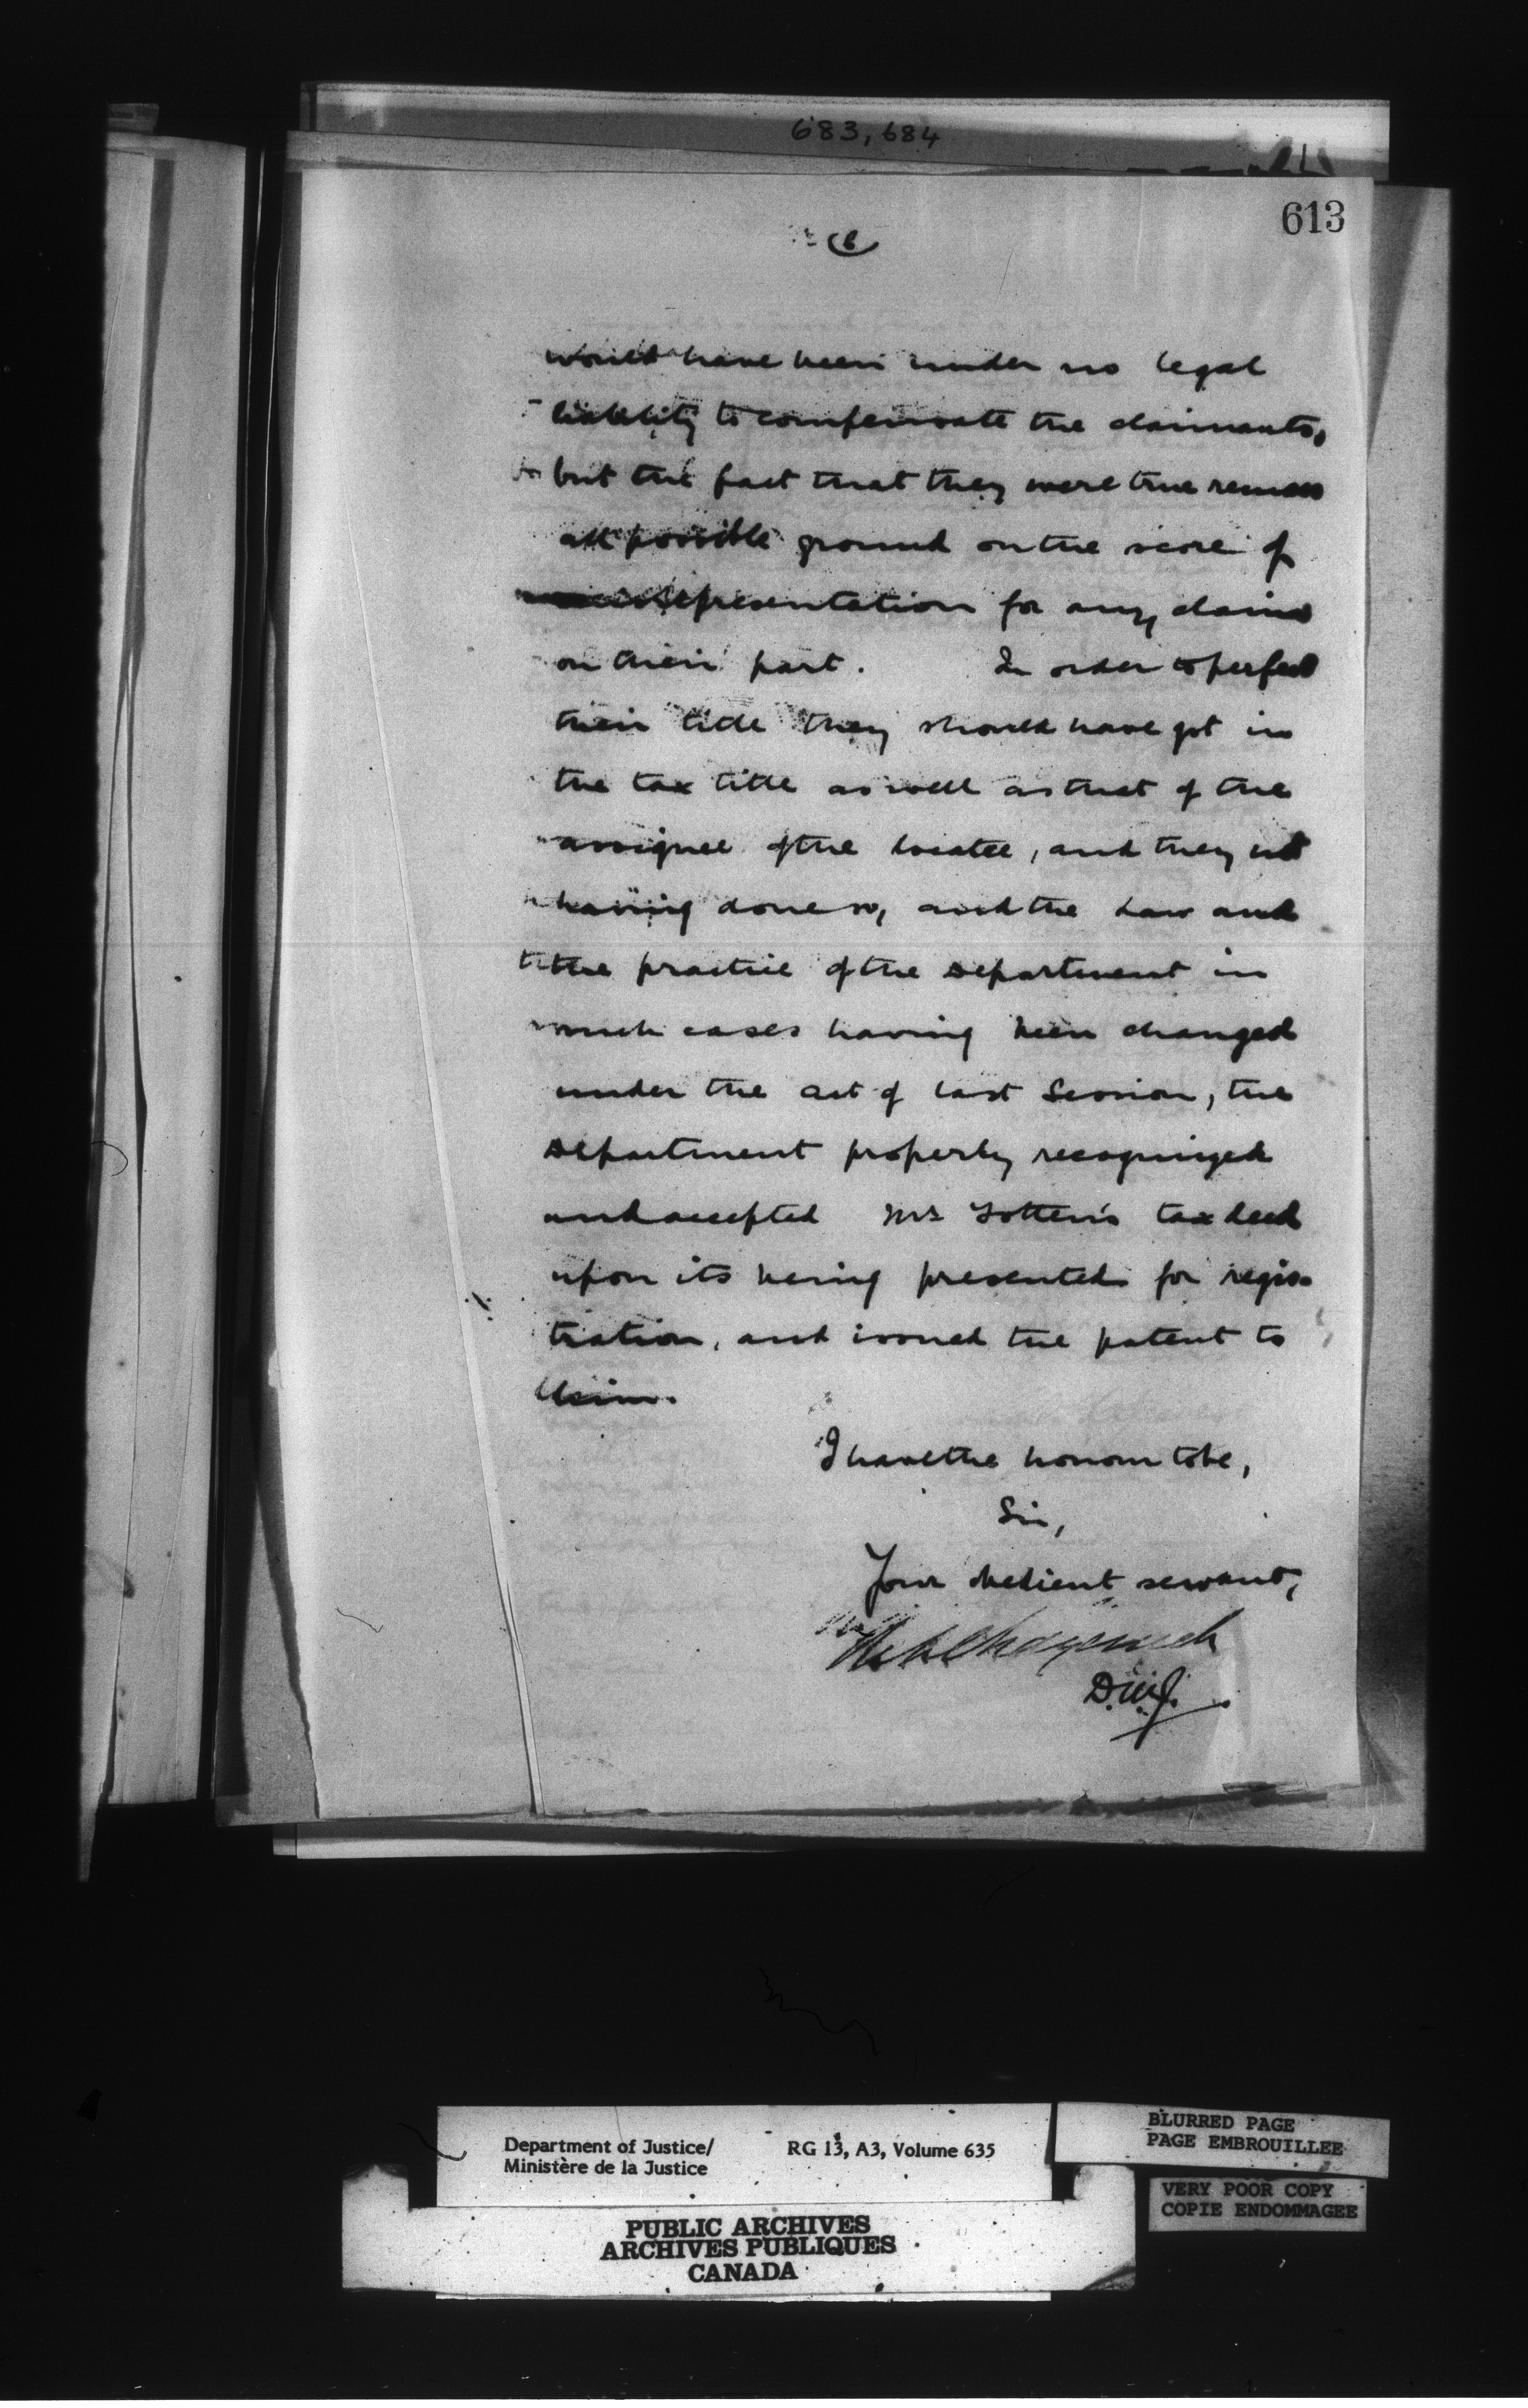 683, 684
613
6
would have been under no legal
liability to compensate the claimants,
but the fact that they were true removes
all possible ground on the score of
misrepresentation for any claim
on their part. In order to perfect
their title they should have got in
the tax title as well as that of the
assignee of the locatee, and they not
having done so, and the Law and
the practice of the Department in
such cases having been changed
under the act of last Session, the
Department properly recognized
and accepted Mr. Totten's tax deed
upon its being presented for regis-
tration, and issued the patent to
him.
I have the honour to be,
Sir,
Your obedient servant,
D.M.J.
Department of Justice/
Ministère de la Justice
RG 13, A3, Volume 635
BLURRED PAGE
PAGE EMBROUILLEE
VERY POOR COPY
COPIE ENDOMMAGEE
PUBLIC ARCHIVES
ARCHIVES PUBLIQUES
CANADA